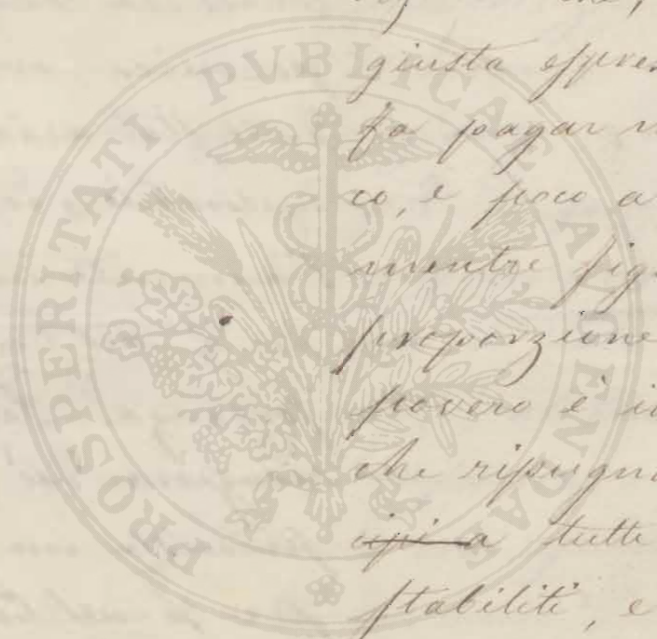 PROSPERITATI PVBLICAE AVGENDAE
giusta
fa pagar
co, e poco a
mentre fig
proporzione
povero è i
che ripugn
a tutte
stabiliti, e